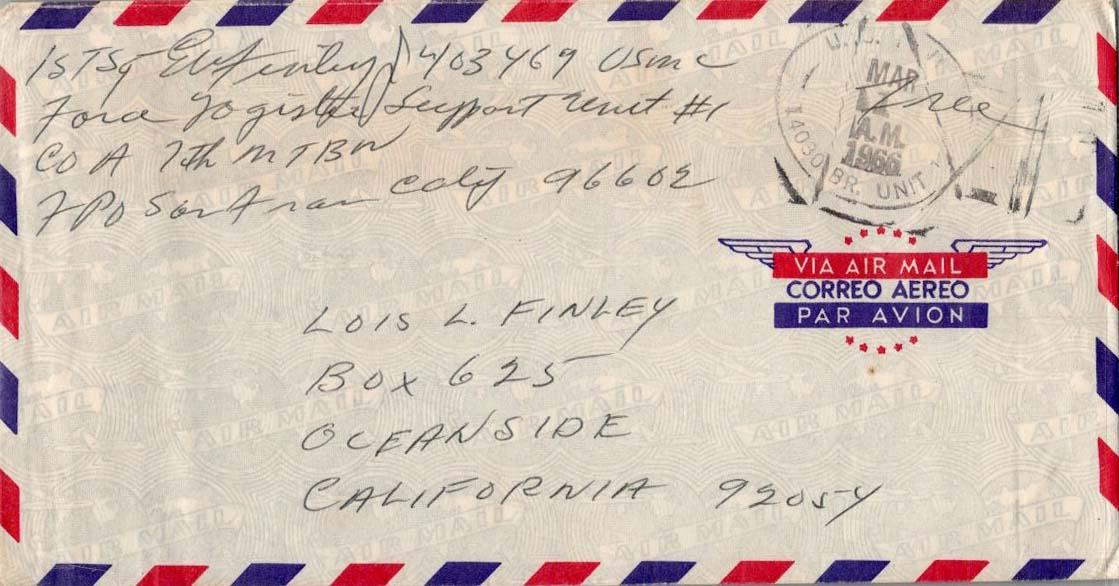 1st Sgt E W Finley 1403469 USMC
Force Logistic Support Unit #1
Co A 7th MT BN
FPO San Fran Calif 96602
U.S.
MAR
A.M.
1966
14030 BR. UNIT
Free
VIA AIR MAIL
CORREO AEREO
PAR AVION
LOIS L. FINLEY
BOX 625
OCEANSIDE
CALIFORNIA 92054